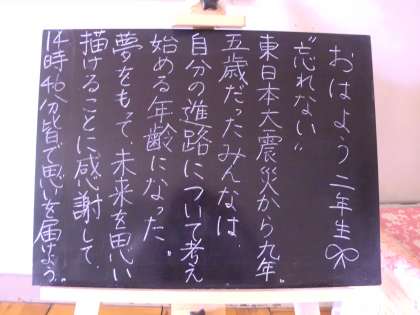 おはよう二年生
"忘れない"
東日本大震災から九年。
五歳だったみんなは、
自分の進路について考え
始める年齢になった。
夢をもって、未来を思い
描けることに感謝して、
14時46分皆で思いを届けよう。